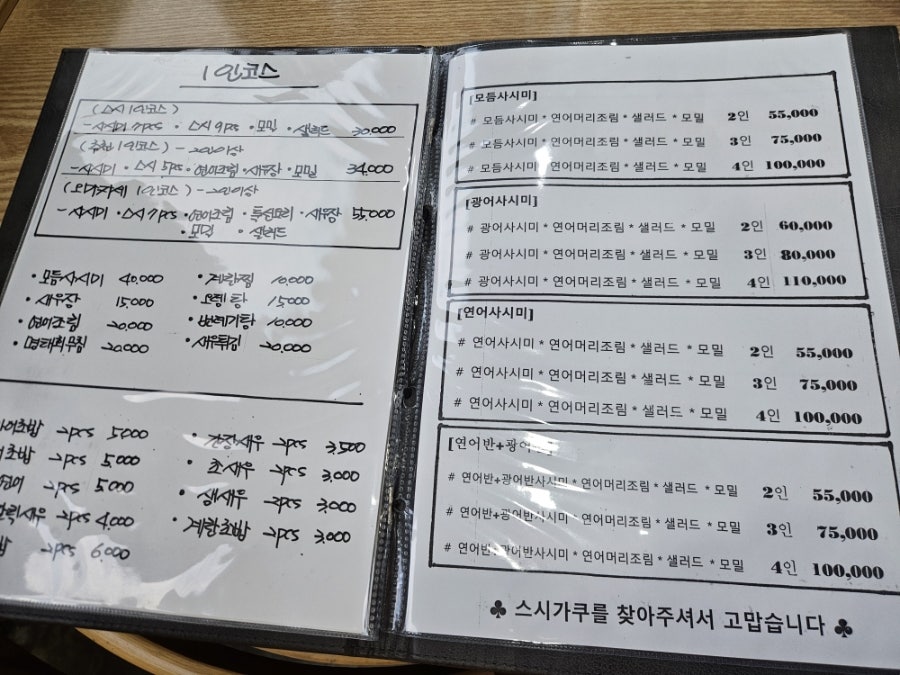 1인코스
(스시 1인코스)
- 사시미 7pcs · 스시 9pcs · 모밀 · 샐러드 30,000
(추천 1인코스) - 2인이상
- 사시미 · 스시 5pcs · 연어조림 · 새우장 · 모밀 34,000
(오마카세 1인코스) - 2인이상
- 사시미 · 스시 7pcs · 연어조림 · 특선요리 · 새우장 55,000
· 모밀 · 샐러드
· 모듬사시미 40,000
· 새우장 15,000
· 연어조림 20,000
· 명태회무침 20,000
· 계란찜 10,000
· 오뎅탕 15,000
· 번데기탕 10,000
· 새우튀김 20,000
초밥 2pcs 5000
초밥 2pcs 5,000
2pcs 5,000
새우 2pcs 4,000
2pcs 6,000
· 간장새우 2pcs 3,500
· 초새우 2pcs 3,000
· 생새우 2pcs 3,000
· 계란초밥 2pcs 3,000
[모듬사시미]
# 모듬사시미 * 연어머리조림 * 샐러드 * 모밀 2인 55,000
# 모듬사시미 * 연어머리조림 * 샐러드 * 모밀 3인 75,000
# 모듬사시미 * 연어머리조림 * 샐러드 * 모밀 4인 100,000
[광어사시미]
# 광어사시미 * 연어머리조림 * 샐러드 * 모밀 2인 60,000
# 광어사시미 * 연어머리조림 * 샐러드 * 모밀 3인 80,000
# 광어사시미 * 연어머리조림 * 샐러드 * 모밀 4인 110,000
[연어사시미]
# 연어사시미 * 연어머리조림 * 샐러드 * 모밀 2인 55,000
# 연어사시미 * 연어머리조림 * 샐러드 * 모밀 3인 75,000
# 연어사시미 * 연어머리조림 * 샐러드 * 모밀 4인 100,000
[연어반+광어반]
# 연어반+광어반사시미 * 연어머리조림 * 샐러드 * 모밀 2인 55,000
# 연어반+광어반사시미 * 연어머리조림 * 샐러드 * 모밀 3인 75,000
# 연어반+광어반사시미 * 연어머리조림 * 샐러드 * 모밀 4인 100,000
♣ 스시가쿠를 찾아주셔서 고맙습니다 ♣